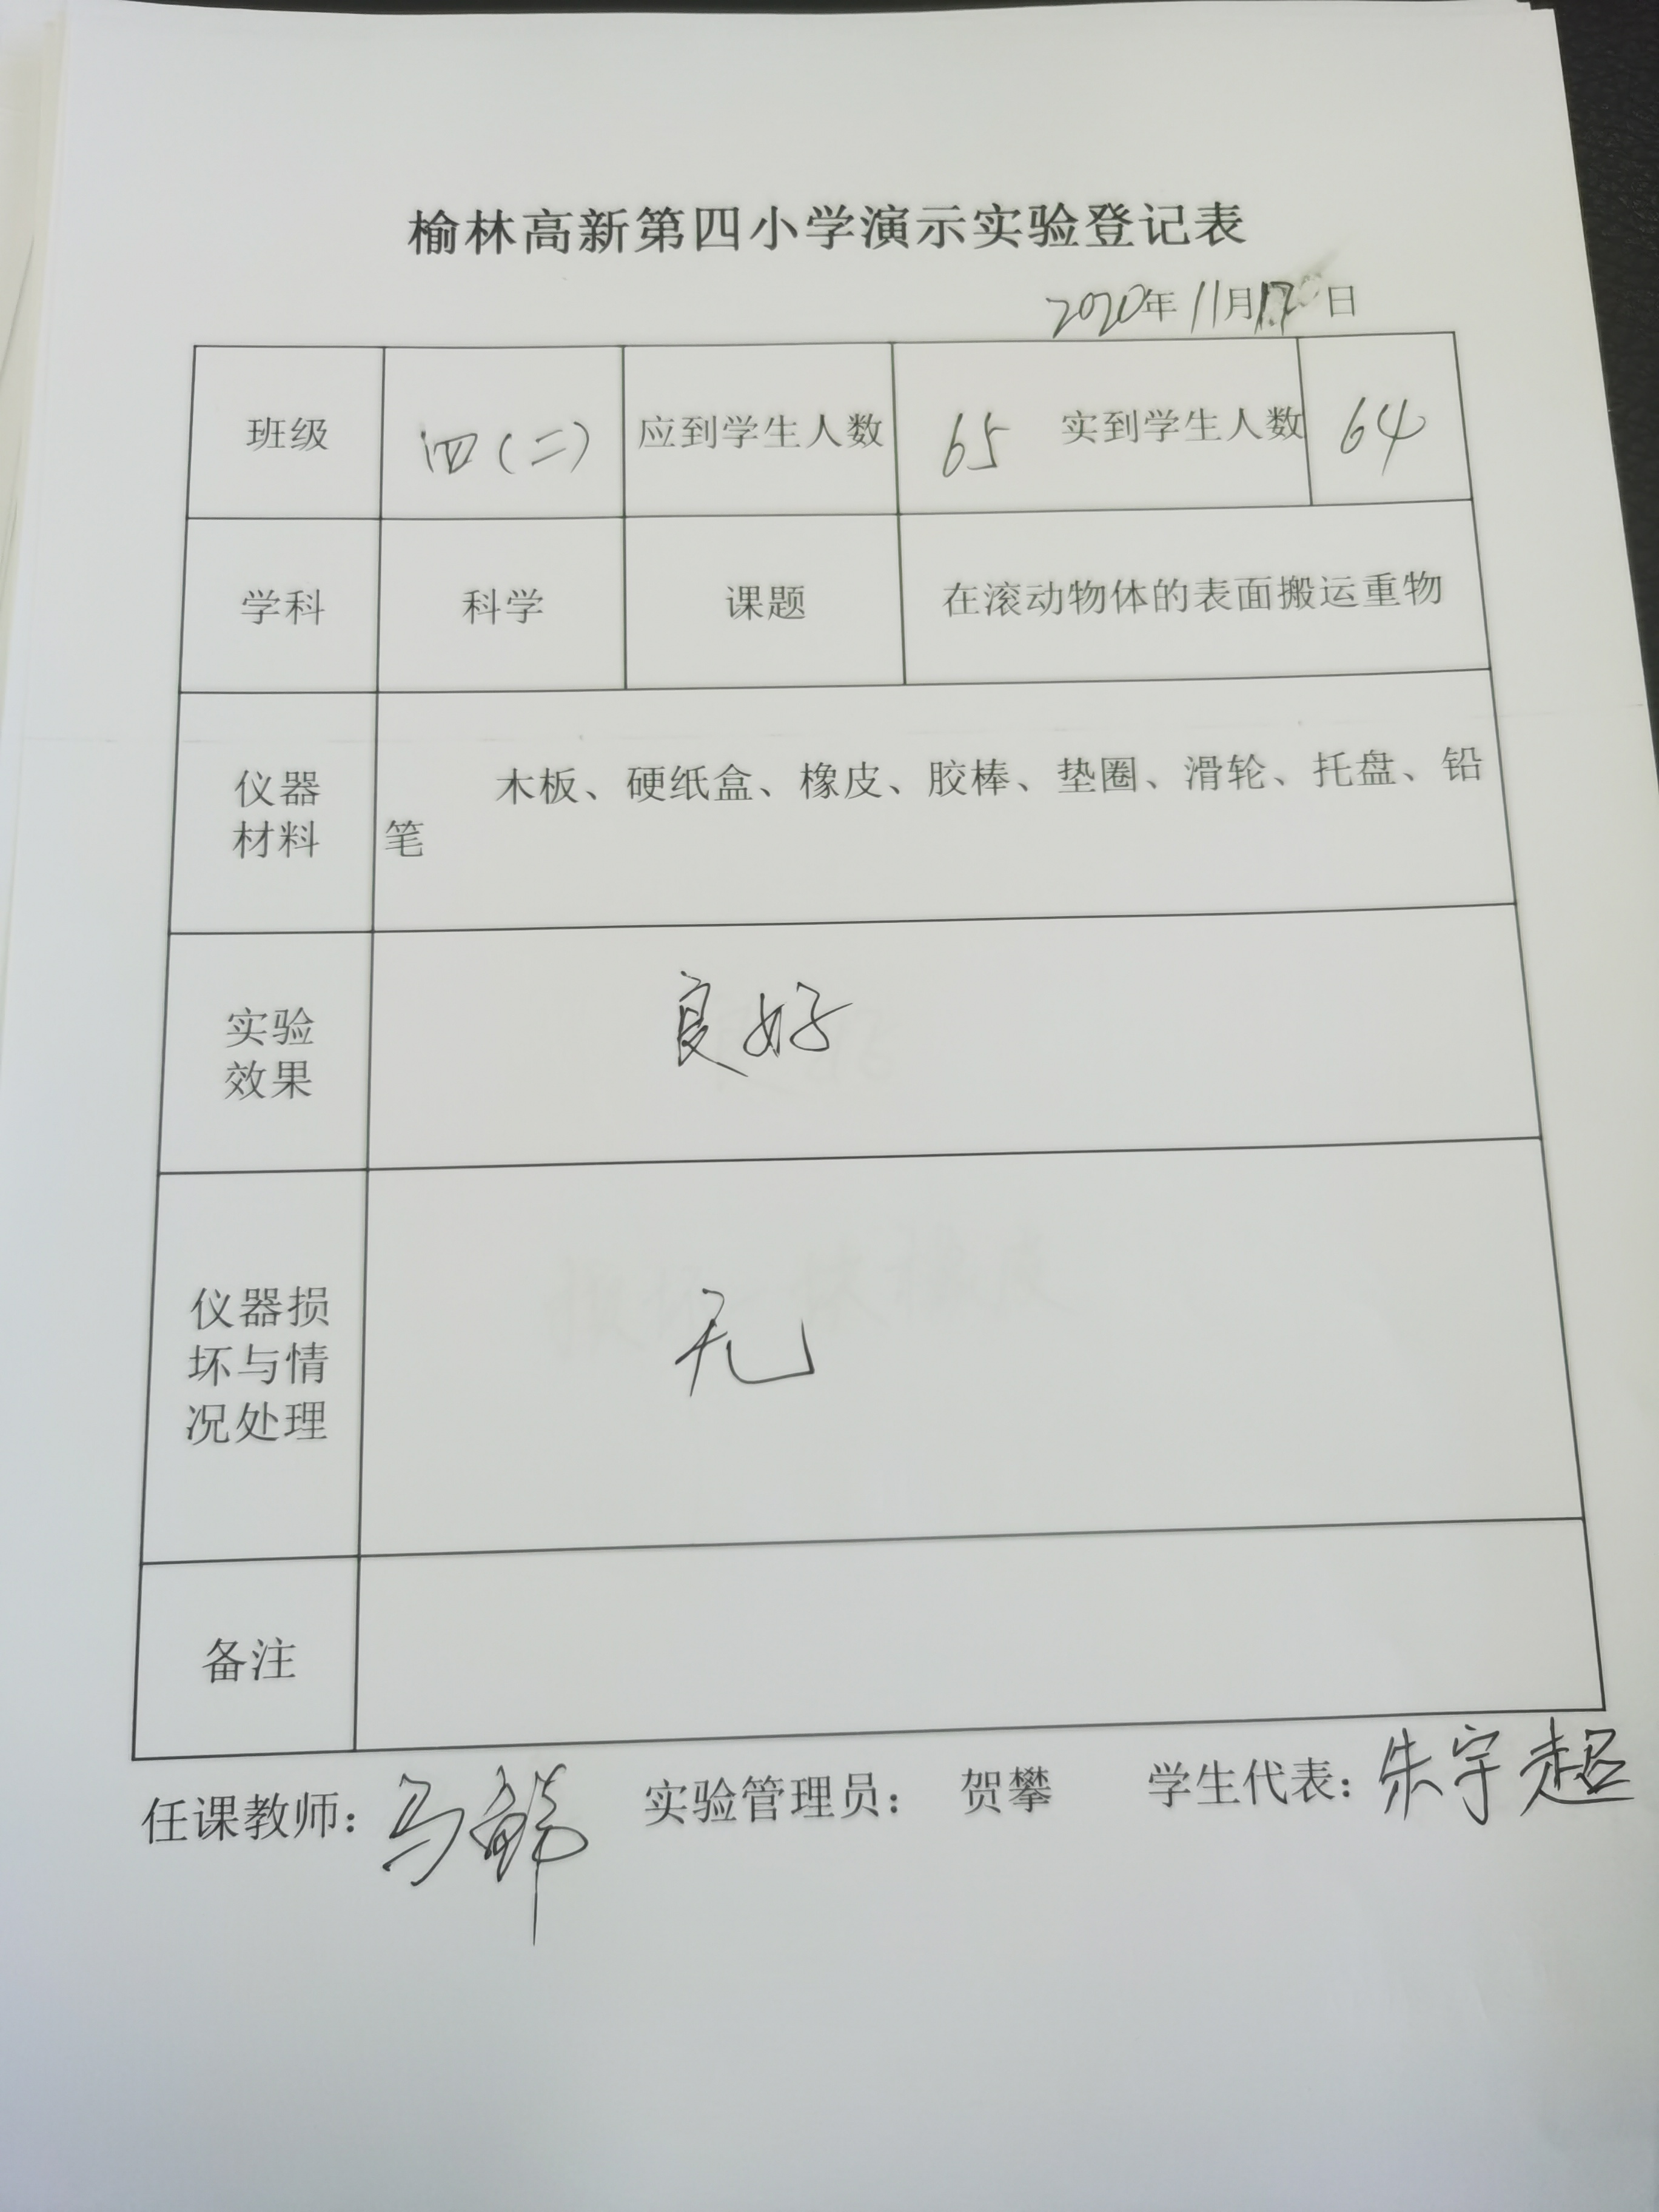 榆林高新第四小学演示实验登记表
2020年11月17日
班级 四(二) 应到学生人数 65 实到学生人数 64
学科 科学 课题 在滚动物体的表面搬运重物
仪器材料 木板、硬纸盒、橡皮、胶棒、垫圈、滑轮、托盘、铅
笔
实验
效果
良好
仪器损
坏与情
况处理
无
备注
任课教师：马 实验管理员： 贺攀 学生代表：朱宇超